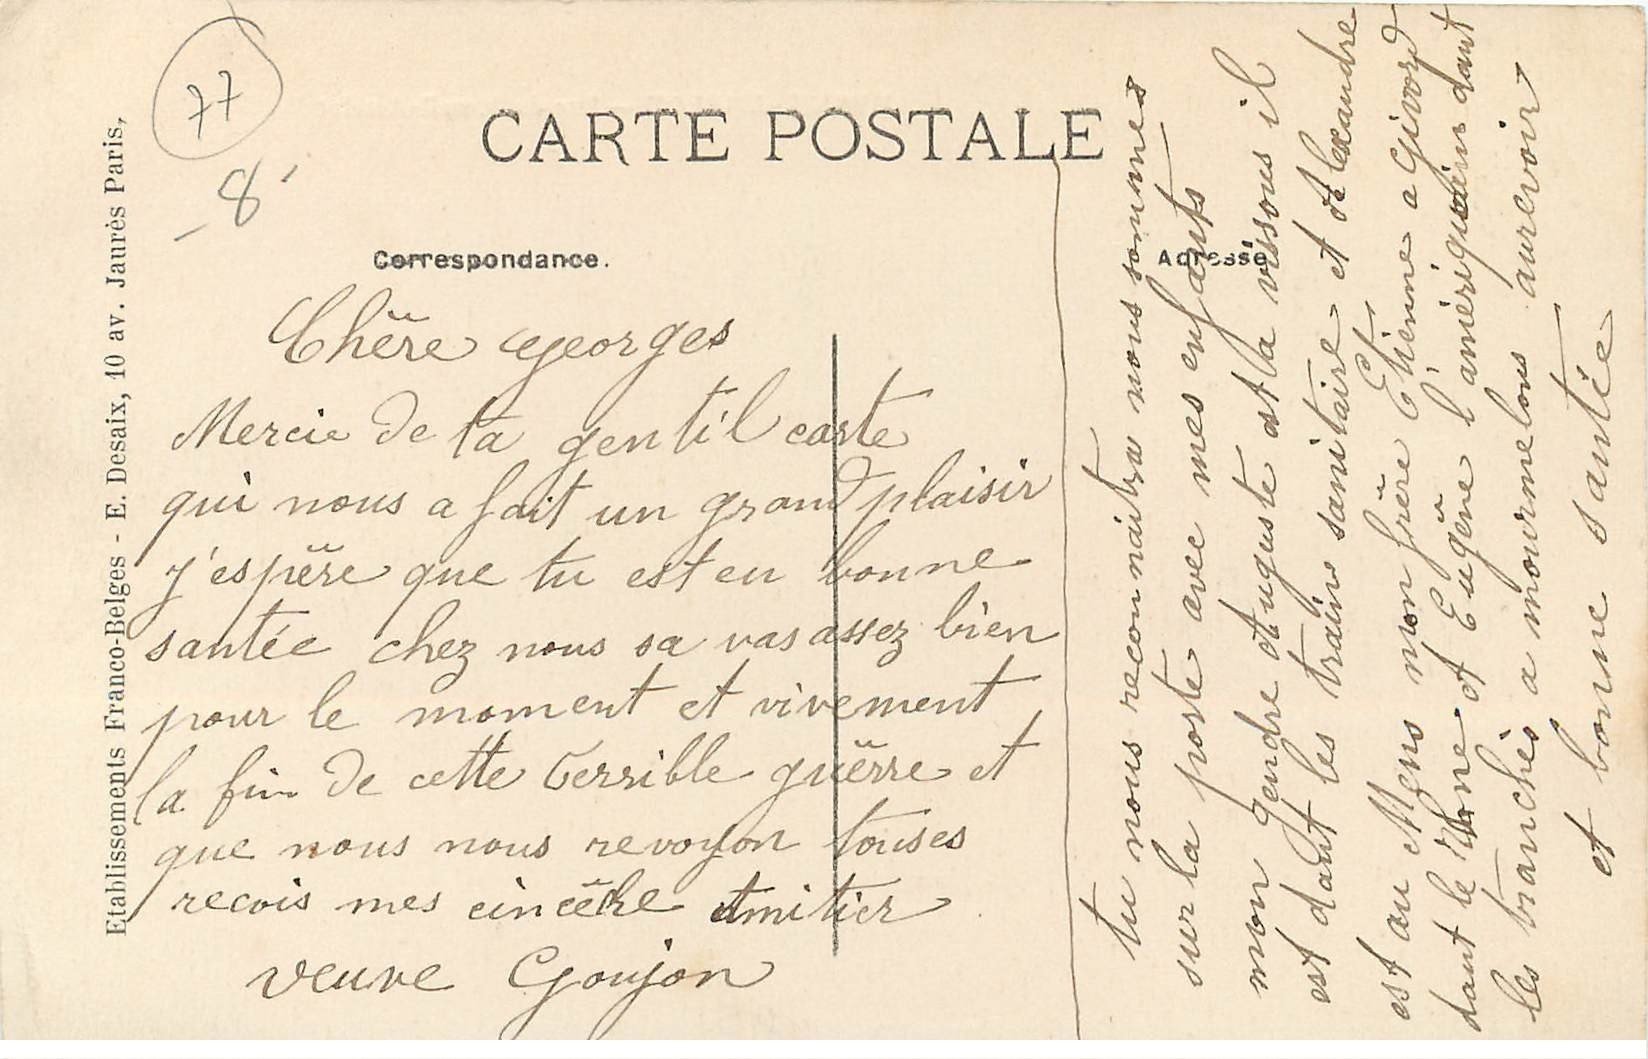 77
- 8
CARTE POSTALE
Correspondance.
Adresse
Etablissements Franco-Belges - E. Desaix, 10 av. Jaurès Paris,
Chëre Georges
Mercie de ta gentil carte
qui nous a fait un grand plaisir
j'espëre que tu est en bonne
santée chez nous sa vas assez bien
pour le moment et vivement
la fin de cette terrible guërre et
que nous nous revoyon touses
recois mes cincëre Amitier
veuve Goujon
tu nous reconnaitra nous sommes
sur la porte avec mes enfants
mon gendre Auguste est la vissous il
est dant les trains sanitaire et Alexandre
est au Mens mon frëre Etienne a Givord
dant le Rhone et Eugëne l'amériquain dant
les tranchés a mourmelons aurevoir
et bonne santie